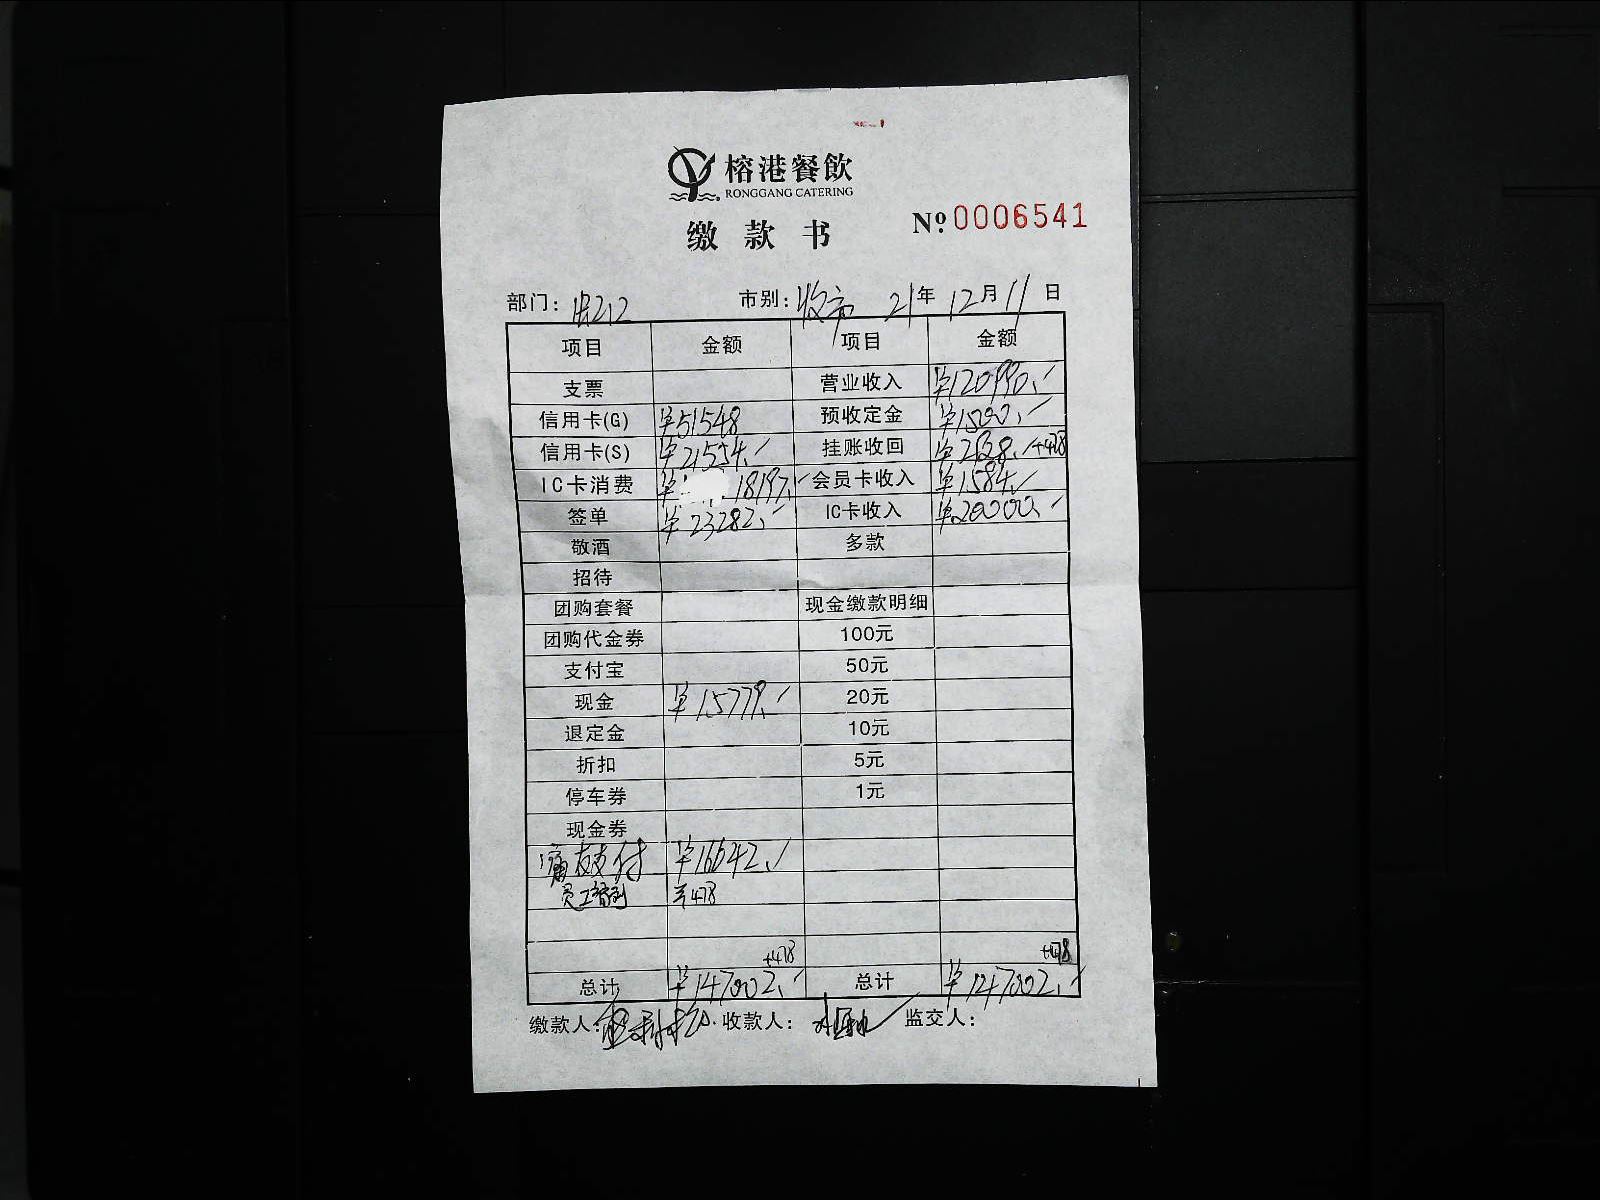 榕港餐飲
RONGGANG CATERING
缴款书
Nº 0006541
部门: 市别:收市 21年 12月 11日
项目 金额 项目 金额
支票 营业收入 ¥120990.
信用卡(G) ¥51548 预收定金
信用卡(S) ¥21554. 挂账收回 +478
IC卡消费 ¥18197. 会员卡收入 ¥1584.
签单 ¥23282. IC卡收入 ¥20000.
敬酒 多款
招待
团购套餐 现金缴款明细
团购代金券 100元
支付宝 50元
现金 ¥15779. 20元
退定金 10元
折扣 5元
停车券 1元
现金券
支付 ¥16642.
员工 ¥478
+478 +478
总计 ¥147002. 总计 ¥147002.
缴款人: 收款人: 监交人: